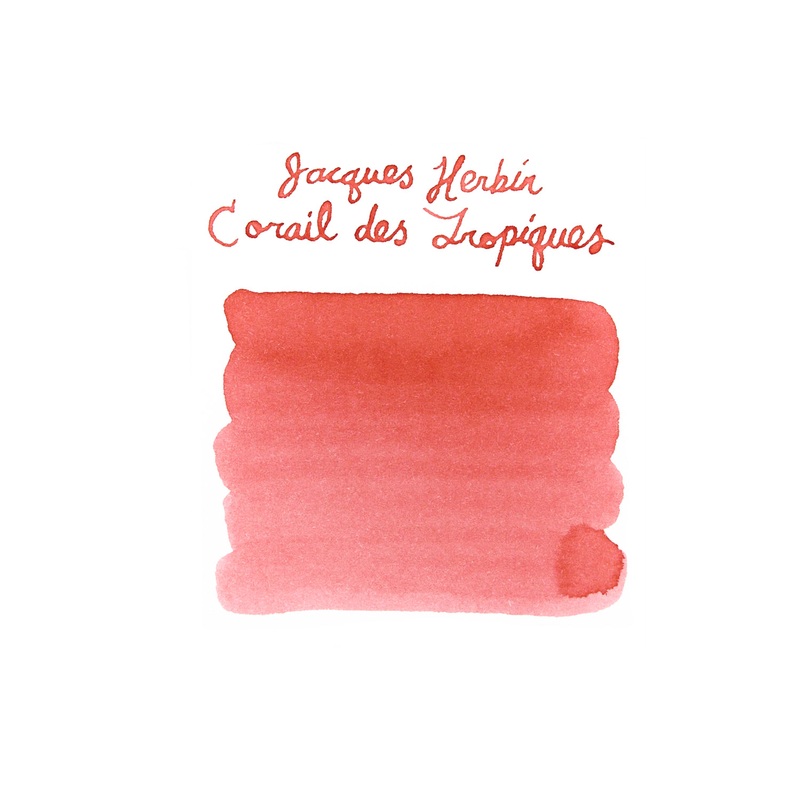 Jacques Herbin
Corail des Tropiques